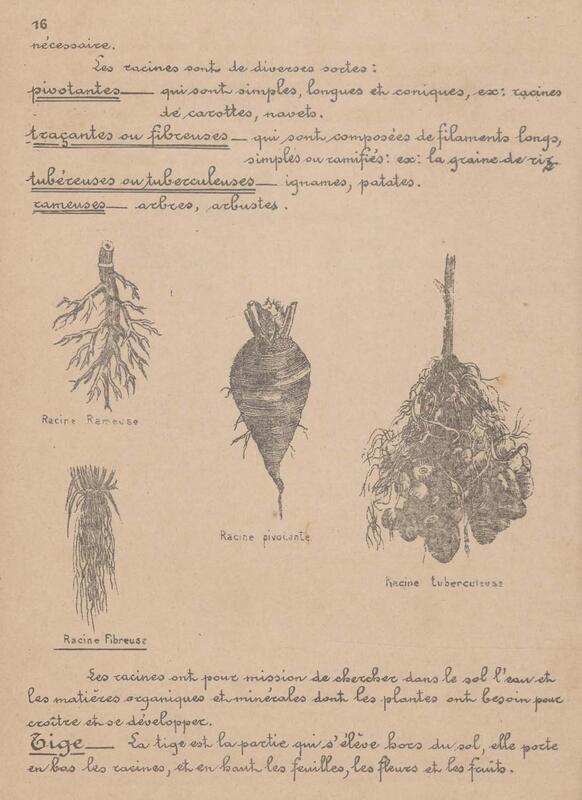 16
nécessaire.
Les racines sont de diverses sortes :
pivotantes — qui sont simples, longues et coniques, ex: racines
de carottes, navets.
traçantes ou fibreuses — qui sont composées de filaments longs,
simples ou ramifiés: ex: la graine de riz
tubéreuses ou tuberculeuses — ignames, patates.
rameuses — arbres, arbustes.
Racine Rameuse
Racine pivotante
Racine tuberculeuse
Racine Fibreuse
Les racines ont pour mission de chercher dans le sol l'eau et
les matières organiques et minérales dont les plantes ont besoin pour
croître et se développer.
Tige — La tige est la partie qui s'élève hors du sol, elle porte
en bas les racines, et en haut les feuilles, les fleurs et les fruits.